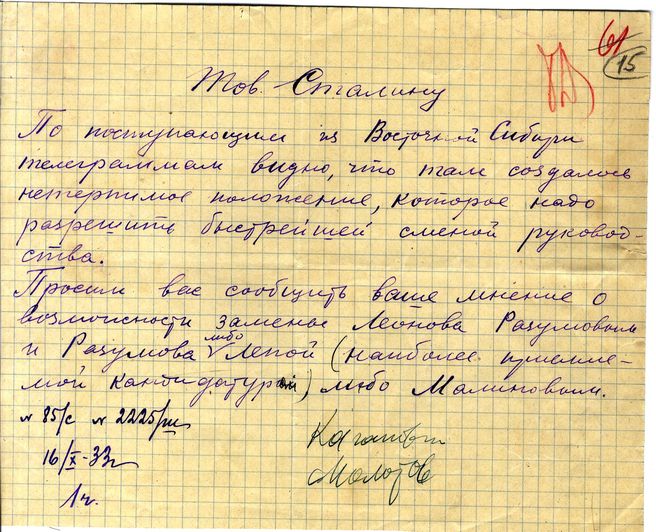 61
15
Тов. Сталину
По поступающим из Восточной Сибири
телеграммам видно, что там создалось
нетерпимое положение, которое надо
разрешить быстрейшей сменой руковод-
ства.
Просим вас сообщить ваше мнение о
возможности замены Леонова Разумовым
и Разумова либо Лепой (наиболее приемле-
мой кандидатурой) либо Малиновым.
н 85/с н 2225/ш
16/X-33г
1ч.
Каганович
Молотов